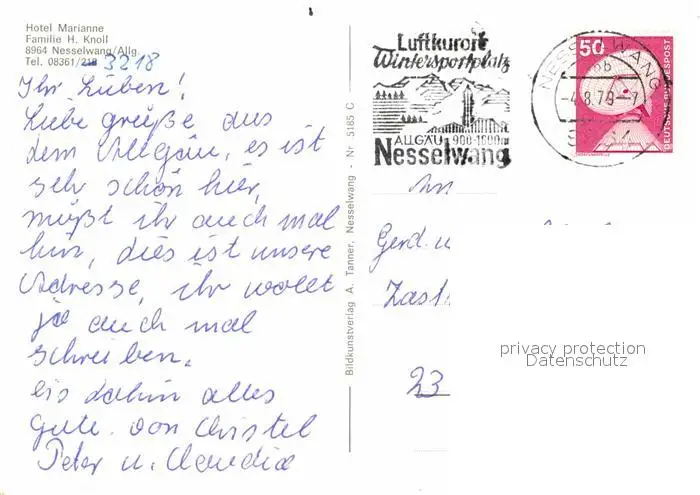 Hotel Marianne
Familie H. Knoll
8964 Nesselwang/Allg.
Tel. 08361/218 3218
Ihr Lieben!
Liebe grüße aus
dem Allgäu, es ist
sehr schön hier,
müßt ihr auch mal
hin, dies ist unsere
Adresse, ihr wollt
ja auch mal
schreiben.
Bis dahin alles
Gute. von Christel
Peter u. Claudia
Bildkunstverlag A. Tanner, Nesselwang - Nr 5185 C
Luftkurort
Wintersportplatz
ALLGÄU 900-1600m
Nesselwang
NESSELWANG
-4.8.79-7
50
DEUTSCHE BUNDESPOST
An
Gerd u
Zast
23
privacy protection
Datenschutz